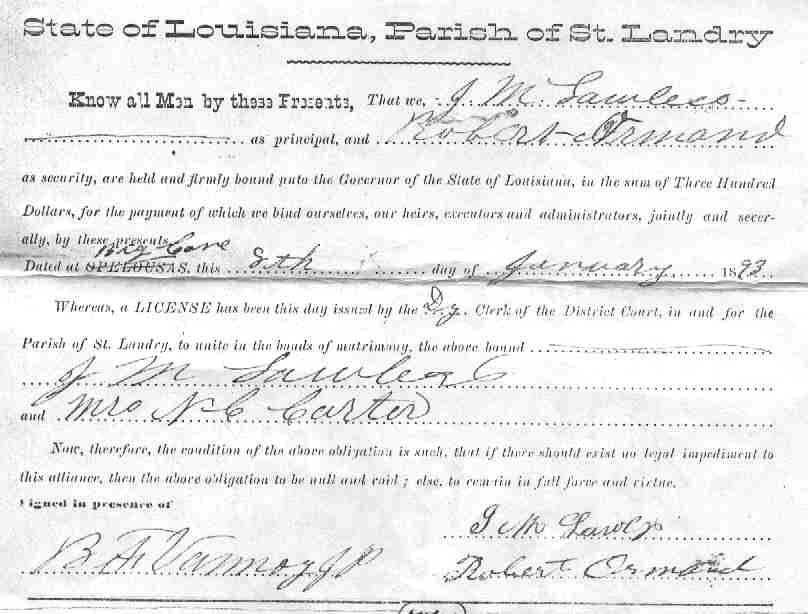 State of Louisiana, Parish of St. Landry
Know all Men by these Presents, That we, J M Lawless
as principal, and Robert Ormand
as security, are held and firmly bound unto the Governor of the State of Louisiana, in the sum of Three Hundred
Dollars, for the payment of which we bind ourselves, our heirs, executors and administrators, jointly and sever-
ally, by these presents.
Big Cane
Dated at OPELOUSAS, this 8th day of January 1893
Whereas, a LICENSE has been this day issued by the Dy. Clerk of the District Court, in and for the
Parish of St. Landry, to unite in the bonds of matrimony, the above bound
J M Lawless
and Mrs N C Carter
Now, therefore, the condition of the above obligation is such, that if there should exist no legal impediment to
this alliance, then the above obligation to be null and void; else, to remain in full force and virtue.
Signed in presence of
J M Lawless
B F Vannoy J P Robert Ormand